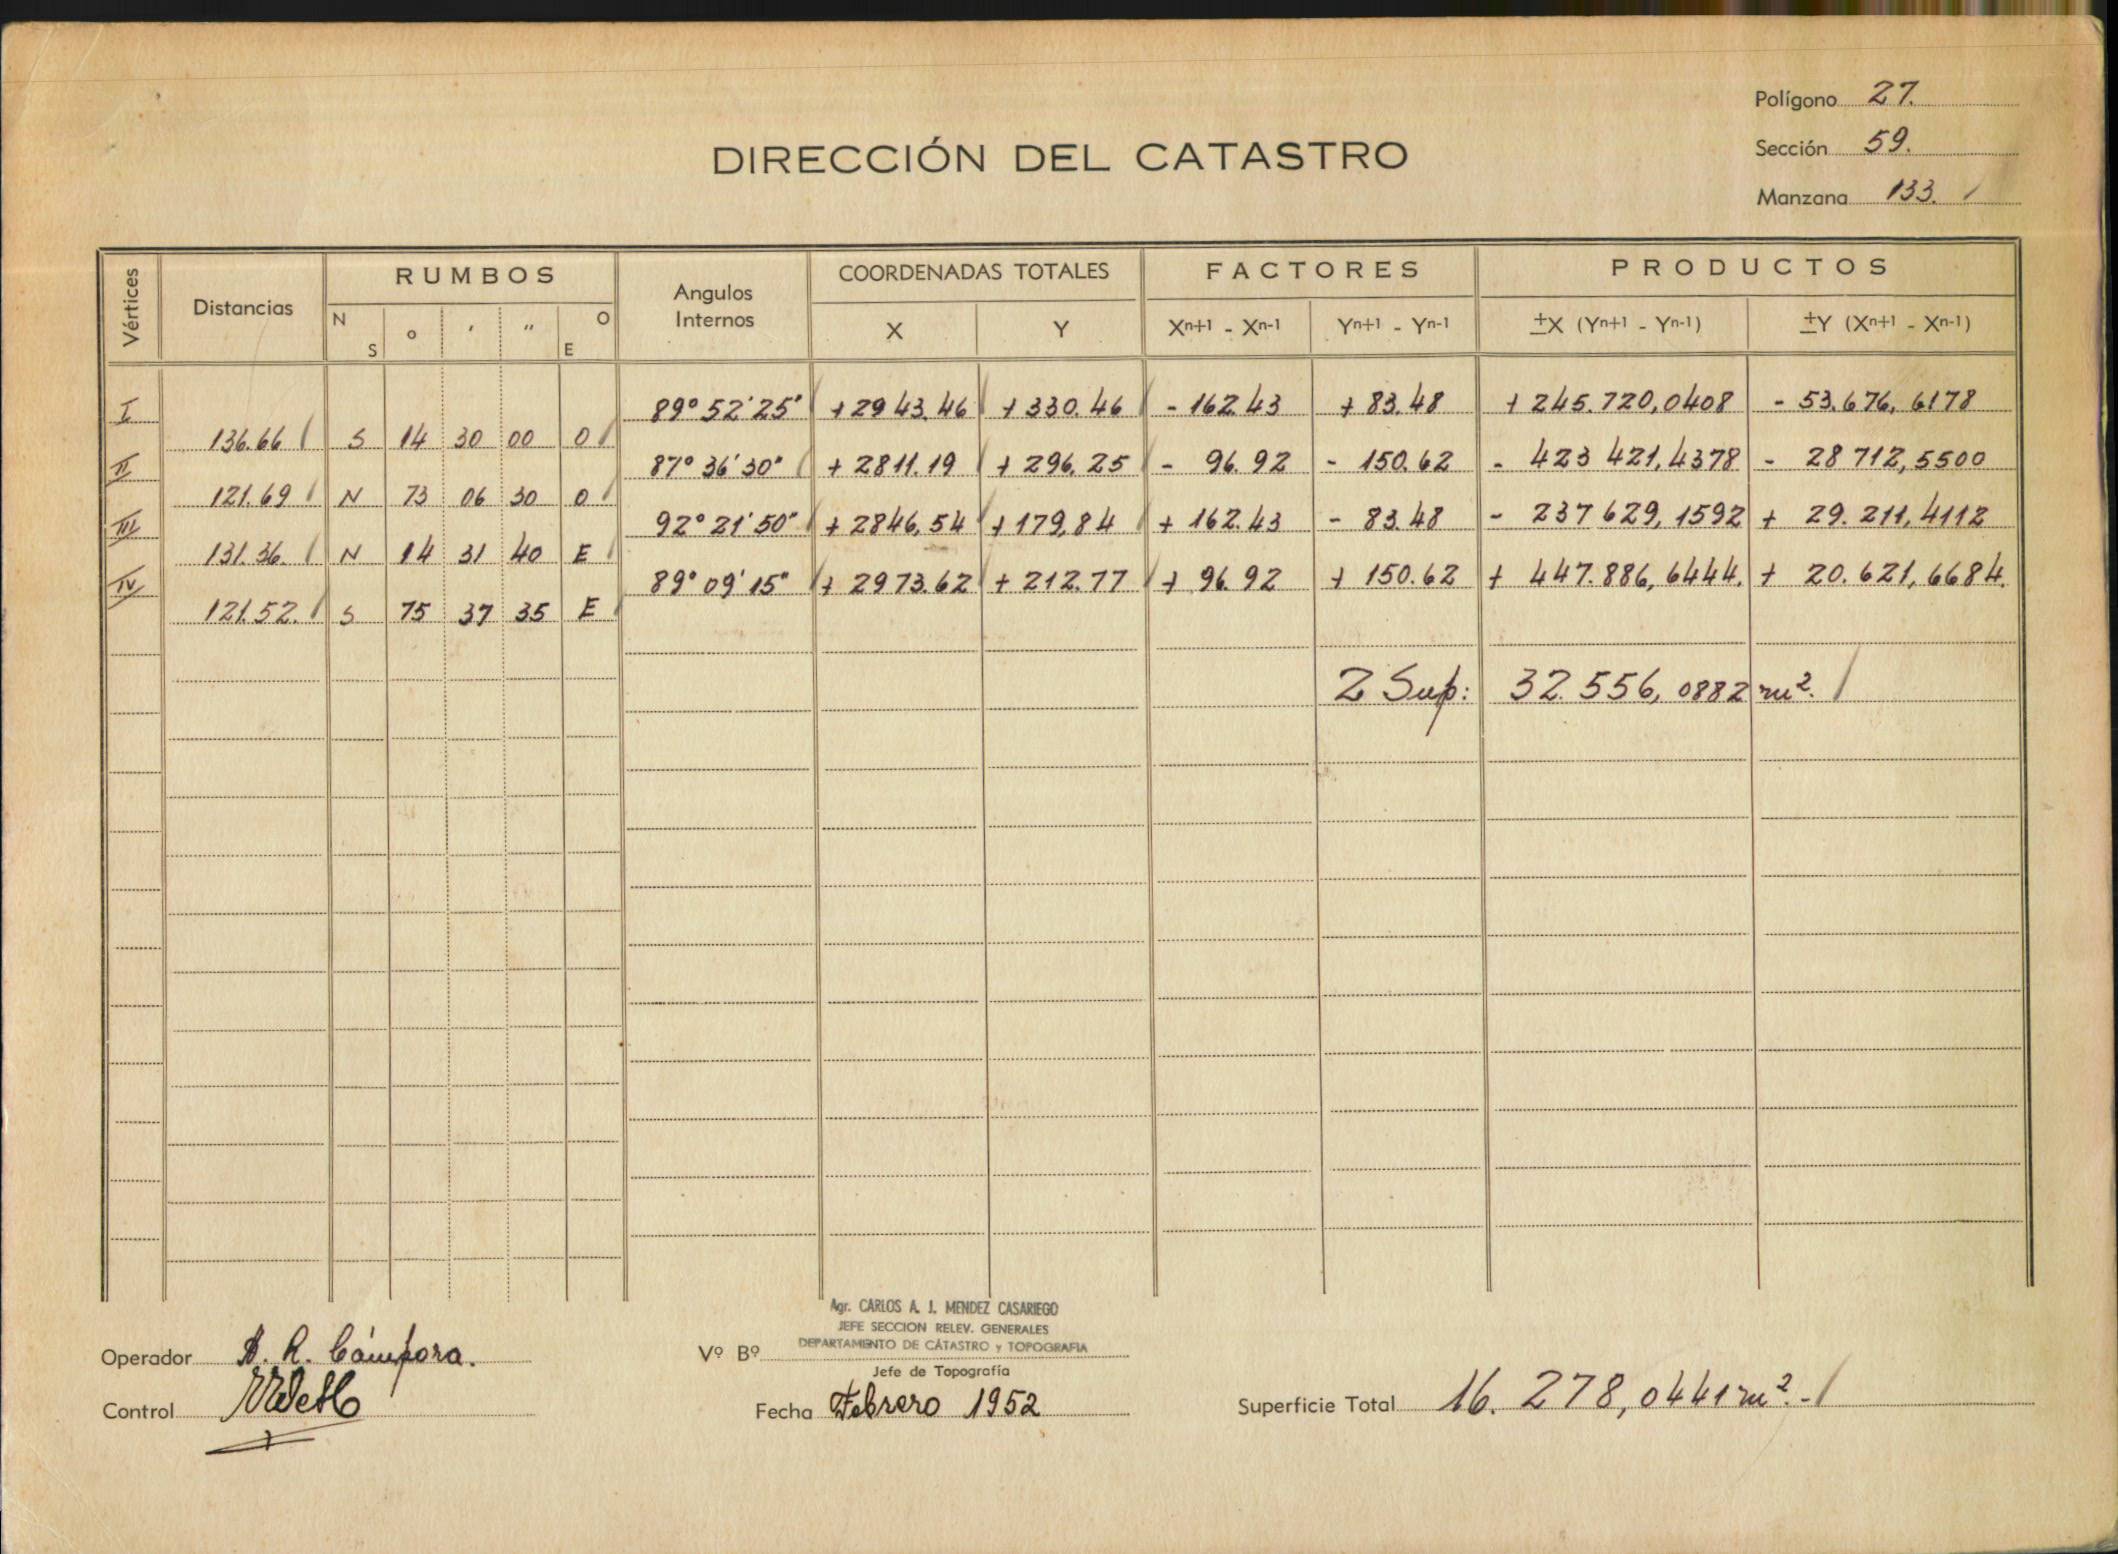 Polígono 27.
DIRECCIÓN DEL CATASTRO
Sección 59.
Manzana 133.
Vértices Distancias RUMBOS Angulos Internos COORDENADAS TOTALES FACTORES PRODUCTOS
N S ° ' " O E X Y Xⁿ⁺¹ - Xⁿ⁻¹ Yⁿ⁺¹ - Yⁿ⁻¹ ±X (Yⁿ⁺¹ - Yⁿ⁻¹) ±Y (Xⁿ⁺¹ - Xⁿ⁻¹)
I 89° 52' 25" +2943.46 +330.46 - 162.43 + 83.48 + 245.720,0408 - 53.676,6178
136.66 S 14 30 00 O
II 87° 36' 30" + 2811.19 + 296.25 - 96.92 - 150.62 - 423 421,4378 - 28 712,5500
121.69 N 73 06 30 O
III 92° 21' 50" + 2846,54 +179,84 + 162.43 - 83.48 - 237 629,1592 + 29.211,4112
131.36. N 14 31 40 E
IV 89° 09' 15" + 2973.62 + 212.77 + 96.92 + 150.62 + 447.886,6444. + 20.621,6684.
121.52. S 75 37 35 E
2 Sup: 32.556,0882 m².
Agr. CARLOS A. J. MENDEZ CASARIEGO
JEFE SECCION RELEV. GENERALES
DEPARTAMENTO DE CATASTRO y TOPOGRAFIA
Operador R. Cámpora. Vº Bº
Jefe de Topografía
Control Fecha Febrero 1952 Superficie Total 16.278,0441 m².-